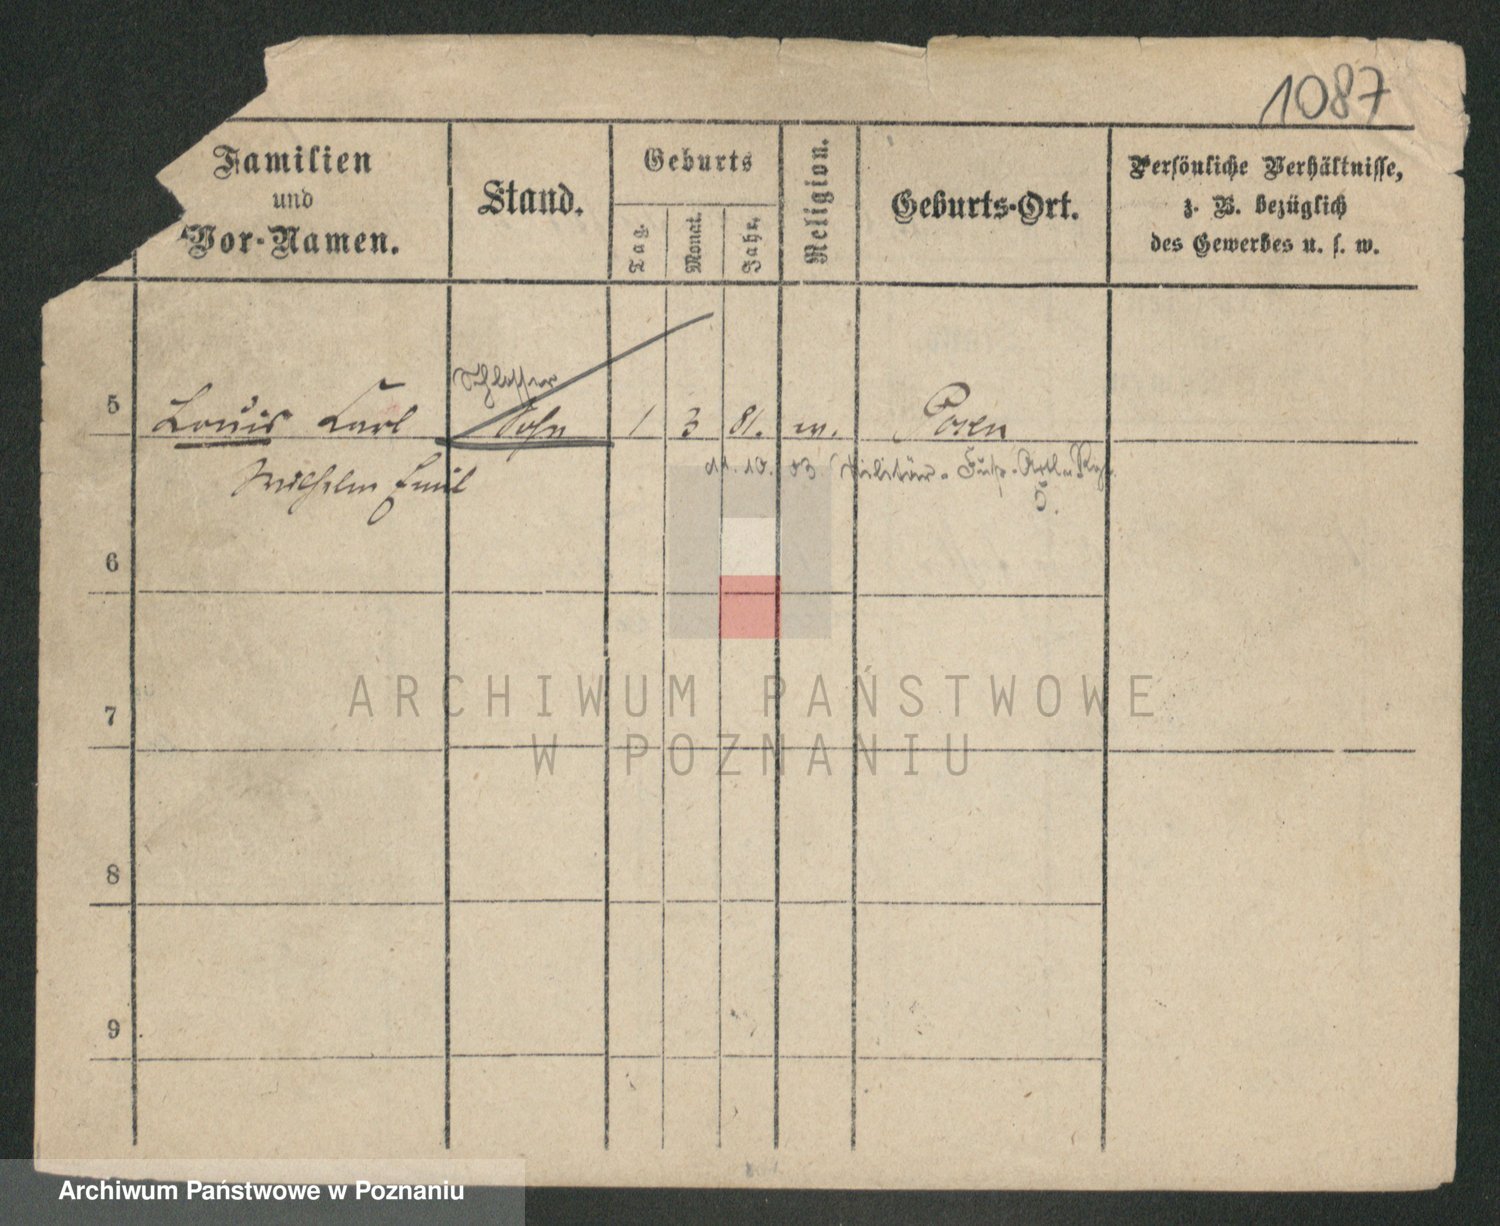 1087
Familien
und
Vor-Namen.
Stand.
Geburts
Tag.
Monat.
Jahr.
Religion.
Geburts-Ort.
Persönliche Verhältnisse,
z. B. bezüglich
des Gewerbes u. s. w.
Schlosser
5 Louis Carl Sohn 1 3 81. ev. Posen
Wilhelm Emil 11. 10. 03 Militär. Fuß-Artl. Rgt.
5.
6
7
8
9
ARCHIWUM PAŃSTWOWE
W POZNANIU
Archiwum Państwowe w Poznaniu